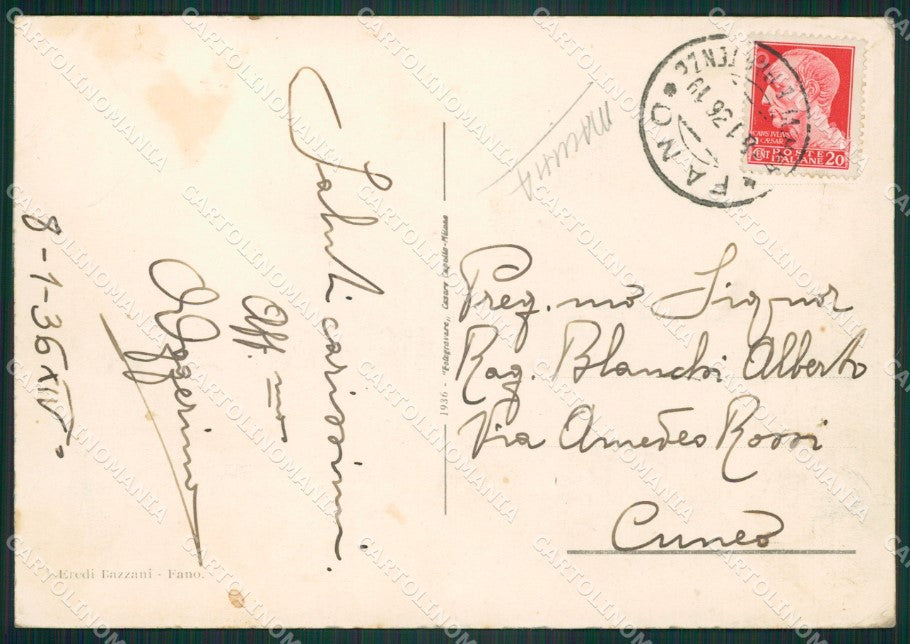 Saluti carissimi.
Aff.mo
8-1-36 XIV
Eredi Bazzani - Fano.
1936 - Fotogravure, Cesare Capello - Milano
FANO
8.1.36.19
CAIVS IVLIVS
CAESAR
CENT
POSTE
ITALIANE
20
Preg.mo Signor
Rag. Blanchi Alberto
Via Amedeo Rossi
Cuneo
CARTOLINOMANIA